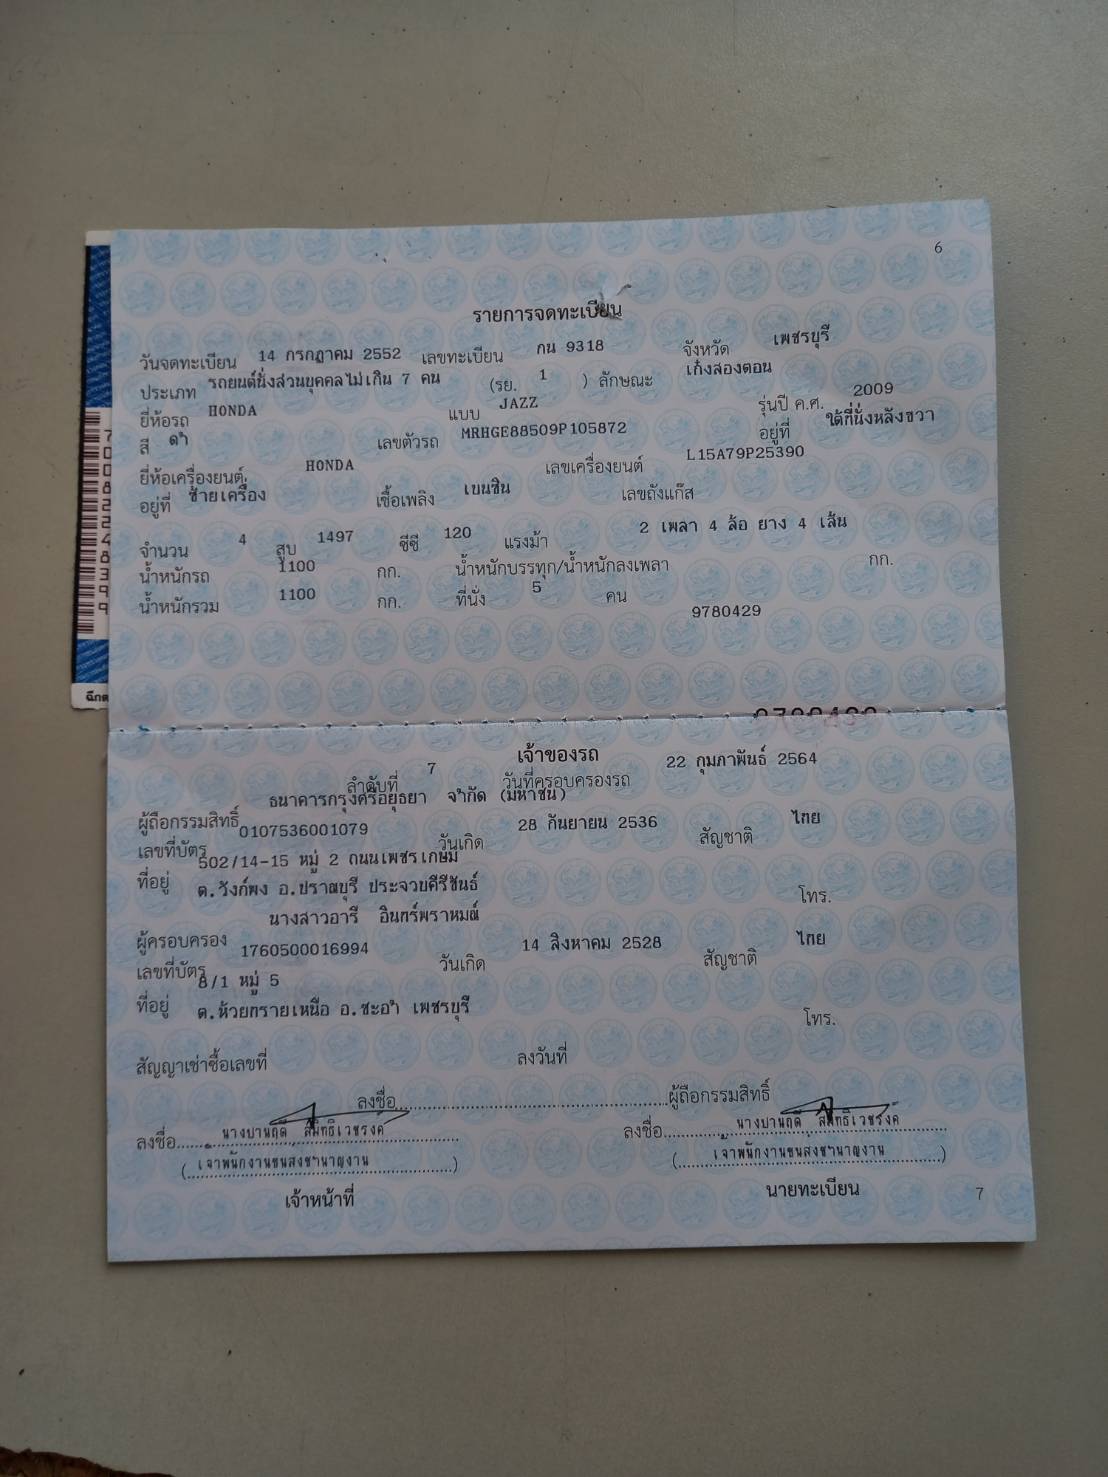 6
รายการจดทะเบียน
วันจดทะเบียน 14 กรกฎาคม 2552 เลขทะเบียน กน 9318 จังหวัด เพชรบุรี
ประเภท รถยนต์นั่งส่วนบุคคลไม่เกิน 7 คน (รย. 1 ) ลักษณะ เก๋งสองตอน
ยี่ห้อรถ HONDA แบบ JAZZ รุ่นปี ค.ศ. 2009
สี ดำ เลขตัวรถ MRHGE88509P105872 อยู่ที่ ใต้ที่นั่งหลังขวา
ยี่ห้อเครื่องยนต์ HONDA เลขเครื่องยนต์ L15A79P25390
อยู่ที่ ซ้ายเครื่อง เชื้อเพลิง เบนซิน เลขถังแก๊ส
จำนวน 4 สูบ 1497 ซีซี 120 แรงม้า 2 เพลา 4 ล้อ ยาง 4 เส้น
น้ำหนักรถ 1100 กก. น้ำหนักบรรทุก/น้ำหนักลงเพลา กก.
น้ำหนักรวม 1100 กก. ที่นั่ง 5 คน
9780429
เจ้าของรถ
ลำดับที่ 7 วันที่ครอบครองรถ 22 กุมภาพันธ์ 2564
ผู้ถือกรรมสิทธิ์ ธนาคารกรุงศรีอยุธยา จำกัด (มหาชน)
เลขที่บัตร 0107536001079 วันเกิด 28 กันยายน 2536 สัญชาติ ไทย
ที่อยู่ 502/14-15 หมู่ 2 ถนนเพชรเกษม
ต.วังก์พง อ.ปราณบุรี ประจวบคีรีขันธ์ โทร.
ผู้ครอบครอง นางสาวอารี อินทร์พราหมณ์
เลขที่บัตร 1760500016994 วันเกิด 14 สิงหาคม 2528 สัญชาติ ไทย
ที่อยู่ 8/1 หมู่ 5
ต.ห้วยทรายเหนือ อ.ชะอำ เพชรบุรี โทร.
สัญญาเช่าซื้อเลขที่ ลงวันที่
ลงชื่อ ผู้ถือกรรมสิทธิ์
ลงชื่อ นางปานฤดี สมิทธิเวชรงค์ ลงชื่อ นางปานฤดี สมิทธิเวชรงค์
(เจ้าพนักงานขนส่งชำนาญงาน) (เจ้าพนักงานขนส่งชำนาญงาน)
เจ้าหน้าที่ นายทะเบียน
7